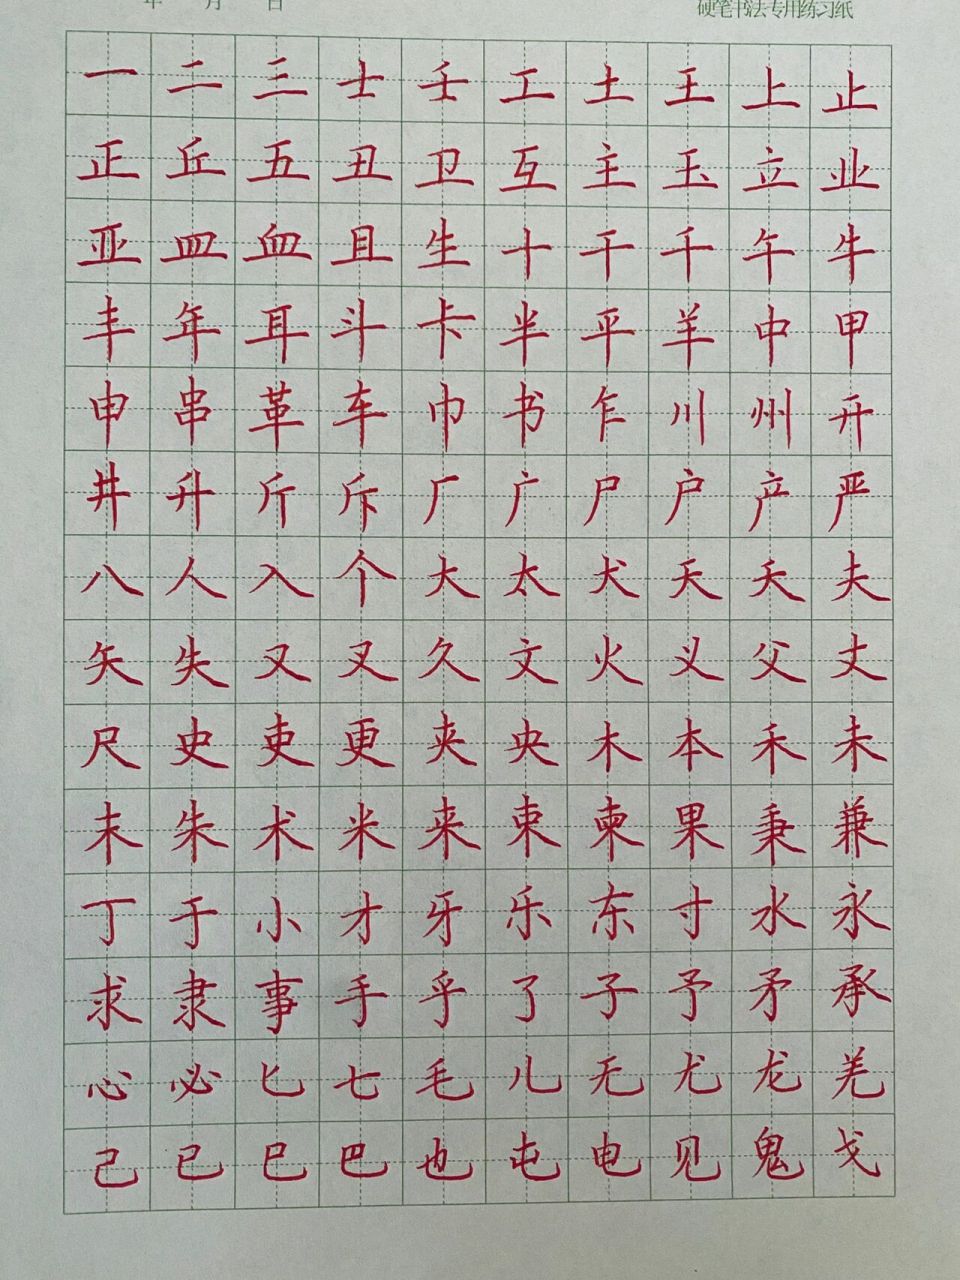 年 月 日 硬笔书法专用练习纸
一 二 三 士 壬 工 土 王 上 止
正 丘 五 丑 卫 互 主 玉 立 业
亚 皿 血 且 生 十 干 千 午 牛
丰 年 耳 斗 卡 半 平 羊 中 甲
申 串 革 车 巾 书 乍 川 州 开
井 升 斤 斥 厂 广 尸 户 产 严
八 人 入 个 大 太 犬 天 夭 夫
矢 失 又 叉 久 文 火 义 父 丈
尺 史 吏 更 夹 央 木 本 禾 未
末 朱 术 米 来 束 柬 果 秉 兼
丁 于 小 才 牙 乐 东 寸 水 永
求 隶 事 手 乎 了 子 予 矛 承
心 必 匕 七 毛 儿 无 尤 龙 羌
己 已 巳 巴 也 屯 电 见 鬼 戈